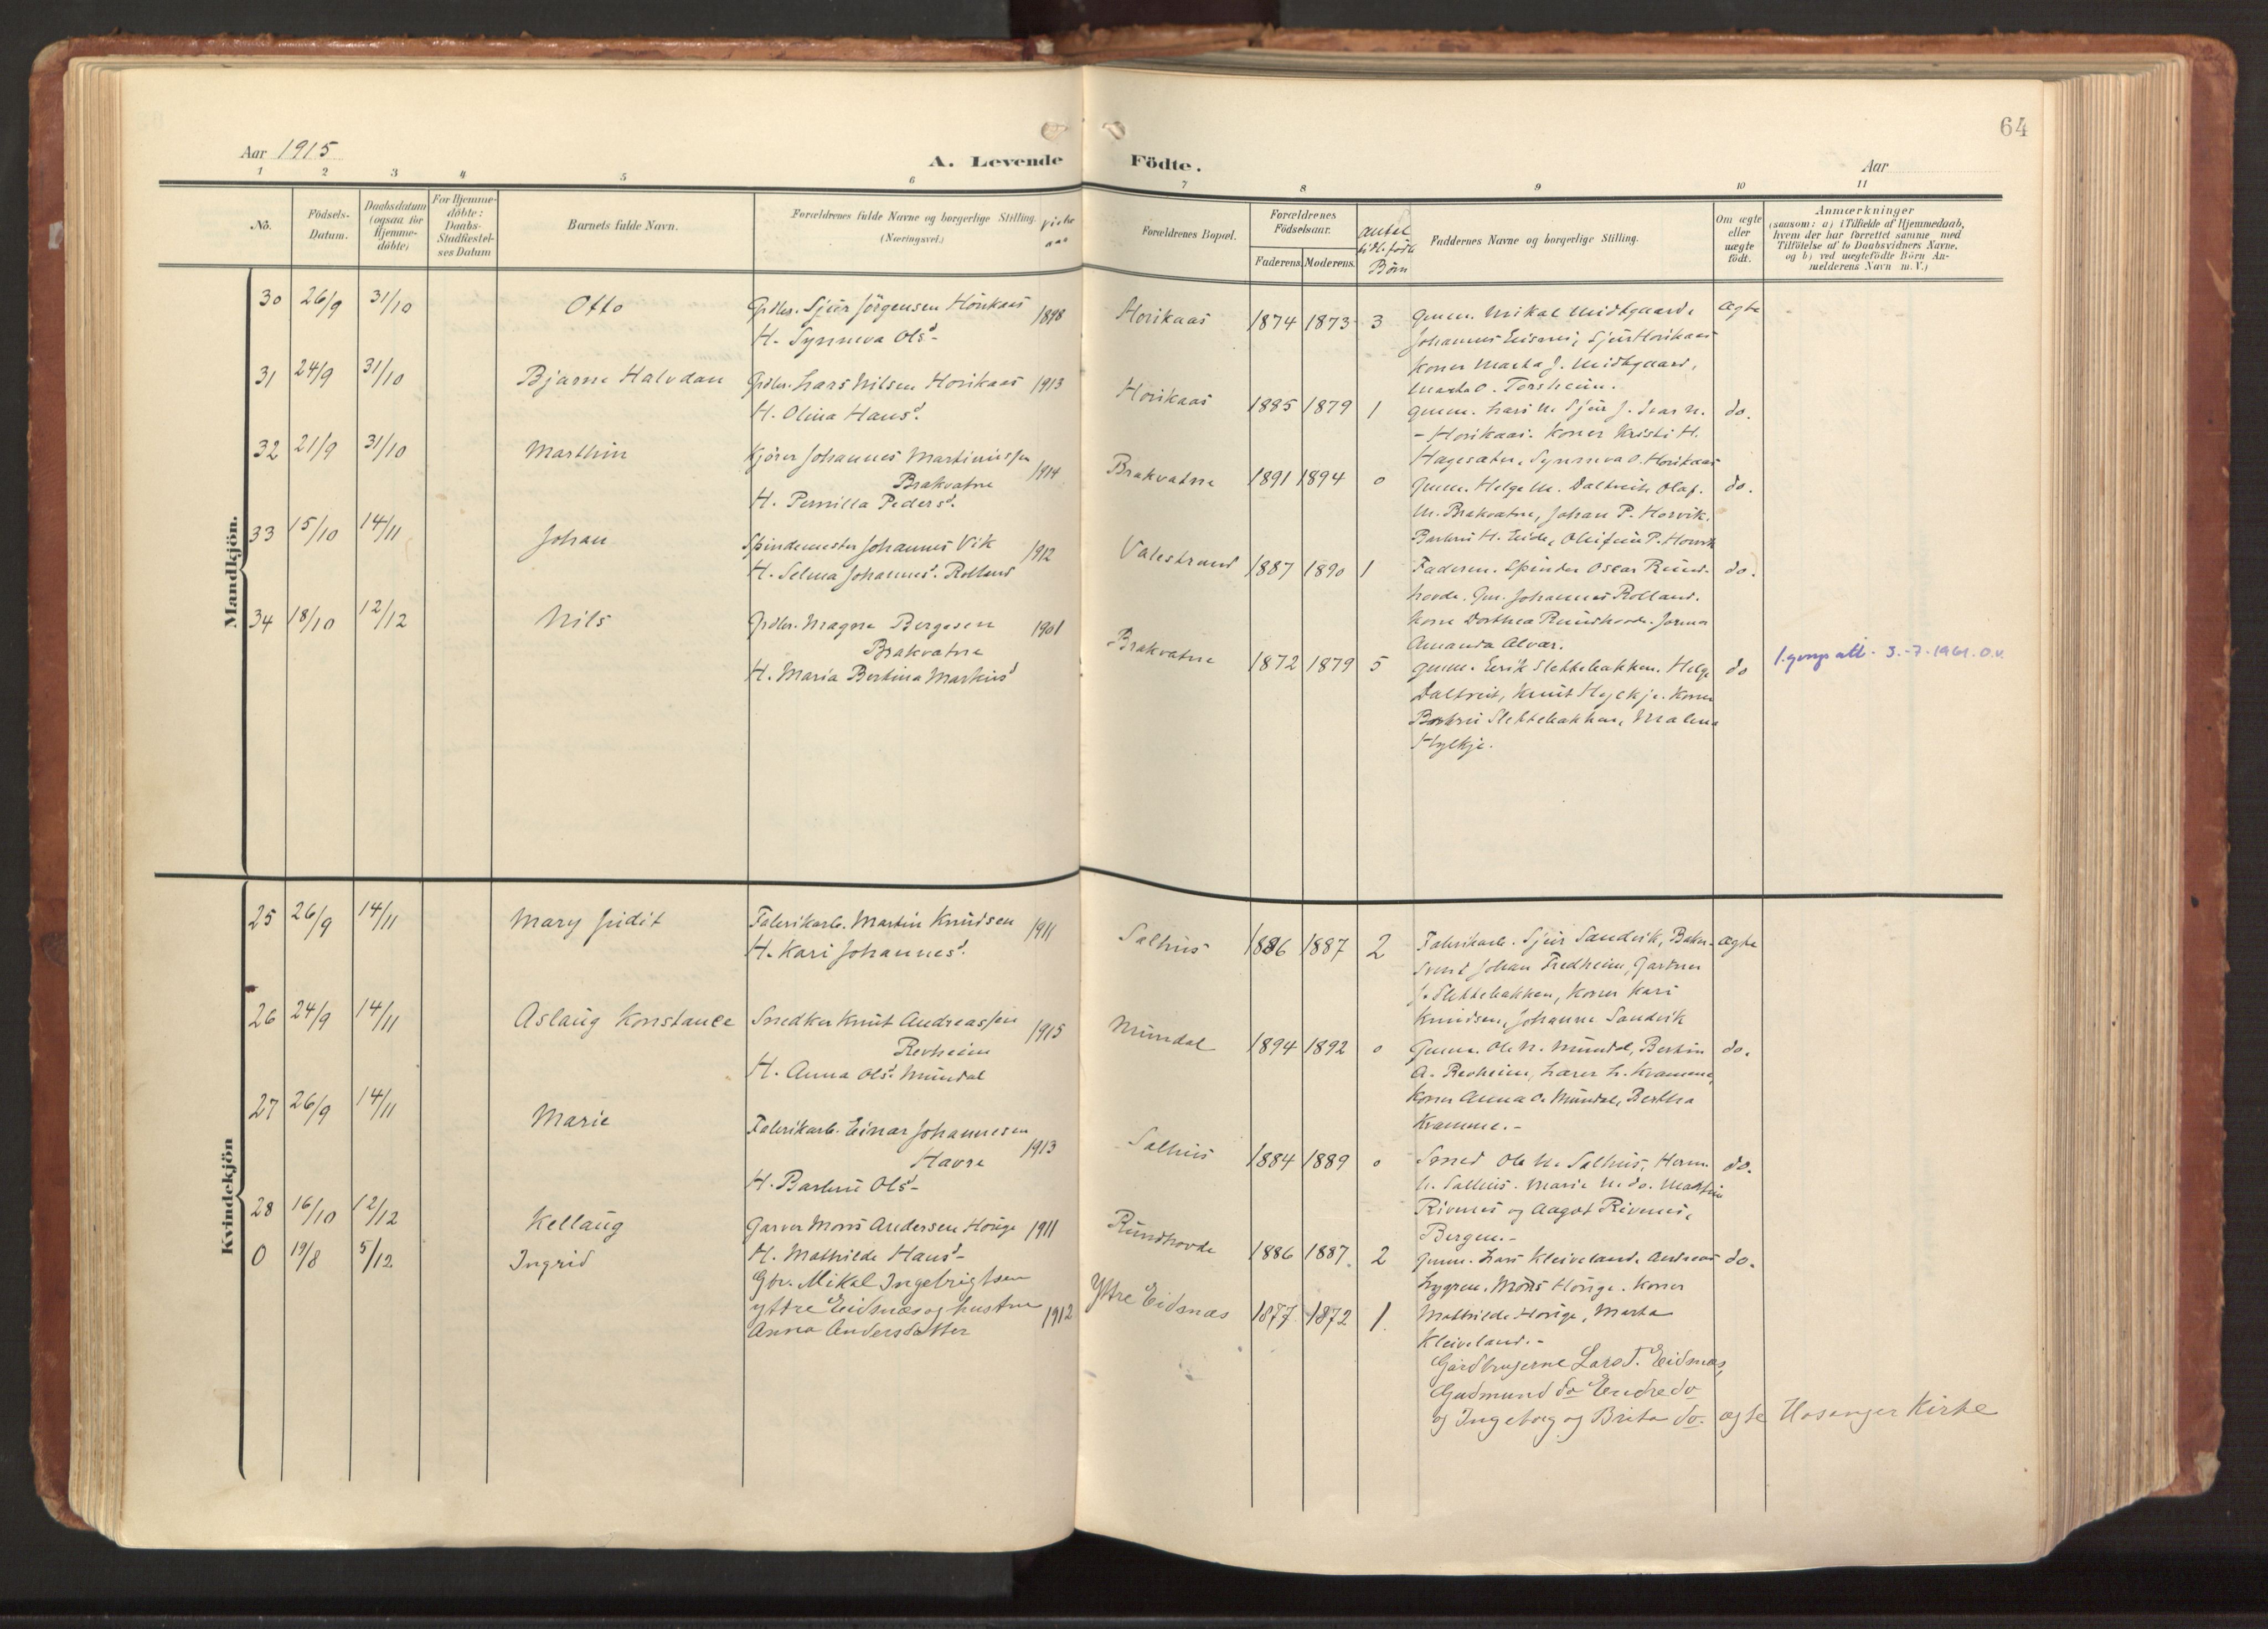 64
Aar 1915
A. Levende
Födte.
Aar
1 2 3 4 5 6 7 8 9 10 11
No.
Födsels-Datum.
Daabsdatum (ogsaa för Hjemme-döbte)
For Hjemme-döbte: Daabs-Stadfæstel-ses Datum
Barnets fulde Navn.
Forældrenes fulde Navne og borgerlige Stilling.
(Næringsvei.)
Forældrenes Bopæl.
Forældrenes Födselsaar.
Faderens. Moderens.
antal
Börn
Faddernes Navne og borgerlige Stilling.
Om ægte eller uægte födt.
Anmærkninger
(saasom: a) i Tilfælde af Hjemmedaab,
hvem der har forrettet samme med
Tilföielse af to Daabsvidners Navne,
og b) ved uægtefödte Börn An-
melderens Navn m. V.)
Mandkjön.
30 26/9 31/10 Otto Grdbr. Sjur Jörgensen Horikaas 1898
H. Synneva Olsd.
Horikaas 1874 1873 3 Gmm. Mikal Midtgaard. ægte
Johannes Eisnes, Sjur Horikaas
Koner Marta J. Midtgaard,
Marta O. Torsheim.
31 24/9 31/10 Bjarne Halvdan Grdbr. Lars Nilsen Horikaas 1913
H. Olina Hansd.
Horikaas 1885 1879 1 gmm. Lars N. Sjur J. Ivar N. do.
- Horikaas. Koner Kristi H.
Hagesæter, Synneva O. Horikaas
32 21/9 31/10 Marthin Kjörer Johannes Martinussen
Brakvatne 1914
H. Pernilla Pedersd.
Brakvatne 1891 1894 0 Gmm. Helge M. Daltveit, Olaf. do.
M. Brakvatne, Johan P. Horvik.
Barbru H. Eide, P. Horvik
33 15/10 14/11 Johan Spindemester Johannes Vik 1912
H. Selma Johannesd. Rolland
Valestrand 1887 1890 1 Faderen. Spinder Oscar Rund- do.
hovde. Gm. Johannes Rolland.
Kone Dorthea Rundhovde.
Amanda Alvær.
34 18/10 12/12 Nils Grdbr. Magne Bergesen 1901
Brakvatne
H. Maria Bertina Markusd
Brakvatne 1872 1879 5 gmm. Eirik Slettebakken. Helge do
Daltveit, Knut Hylkje. Koner
Barbru Slettebakken, Malena
Hylkje.
3.-7.1961. O.V.
Kvindekjön
25 26/9 14/11 Mary Judit Fabrikarb. Martin Knudsen 1911
H. Kari Johannesd.
Salhus 1886 1887 2 Fabrikarb. Sjur Sandvik, Baker- ægte
svend Johan Fredheim, Gartner
J. Slettebakken, Koner Kari
Knudsen, Johanne Sandvik
26 24/9 14/11 Aslaug Konstance Snedker Knut Andreassen 1915
Revheim
H. Anna Olsd. Mundal
Mundal 1894 1892 0 Gmm. Ole N. Mundal, Bertin do.
A. Revheim, Lærer L. Kramme,
Koner Anna O. Mundal, Bertha
Kramme.-
27 26/9 14/11 Marie Fabrikarb. Einar Johannesen
Havre 1913
H. Barbru Olsd-
Salhus 1884 1889 0 Smed Ole N. Salhus, Herm. do.
N. Salhus. Marie N. do. Martin
Rivenes og Aagot Rivenes,
Bergen.-
28 16/10 12/12 Kellaug Garver Mons Andersen Horige 1911
H. Mathilde Hansd-
Rundhovde 1886 1887 2 Gmm. Lars Kleiveland. Andreas do.
Mons Horige. Koner
Mathilde Horige, Marta
Kleiveland.-
0 19/8 5/12 Ingrid Gbr. Mikal Ingebrigtsen
ytre Eidsnæs og hustru 1912
Anna Andersdatter
Ytre Eidsnæs 1877 1872 1. Gårdbrugerne Lars J. Eidsnæs,
Gudmund do Endre do
og Ingeborg og Brita do. ægte Hosanger Kirke